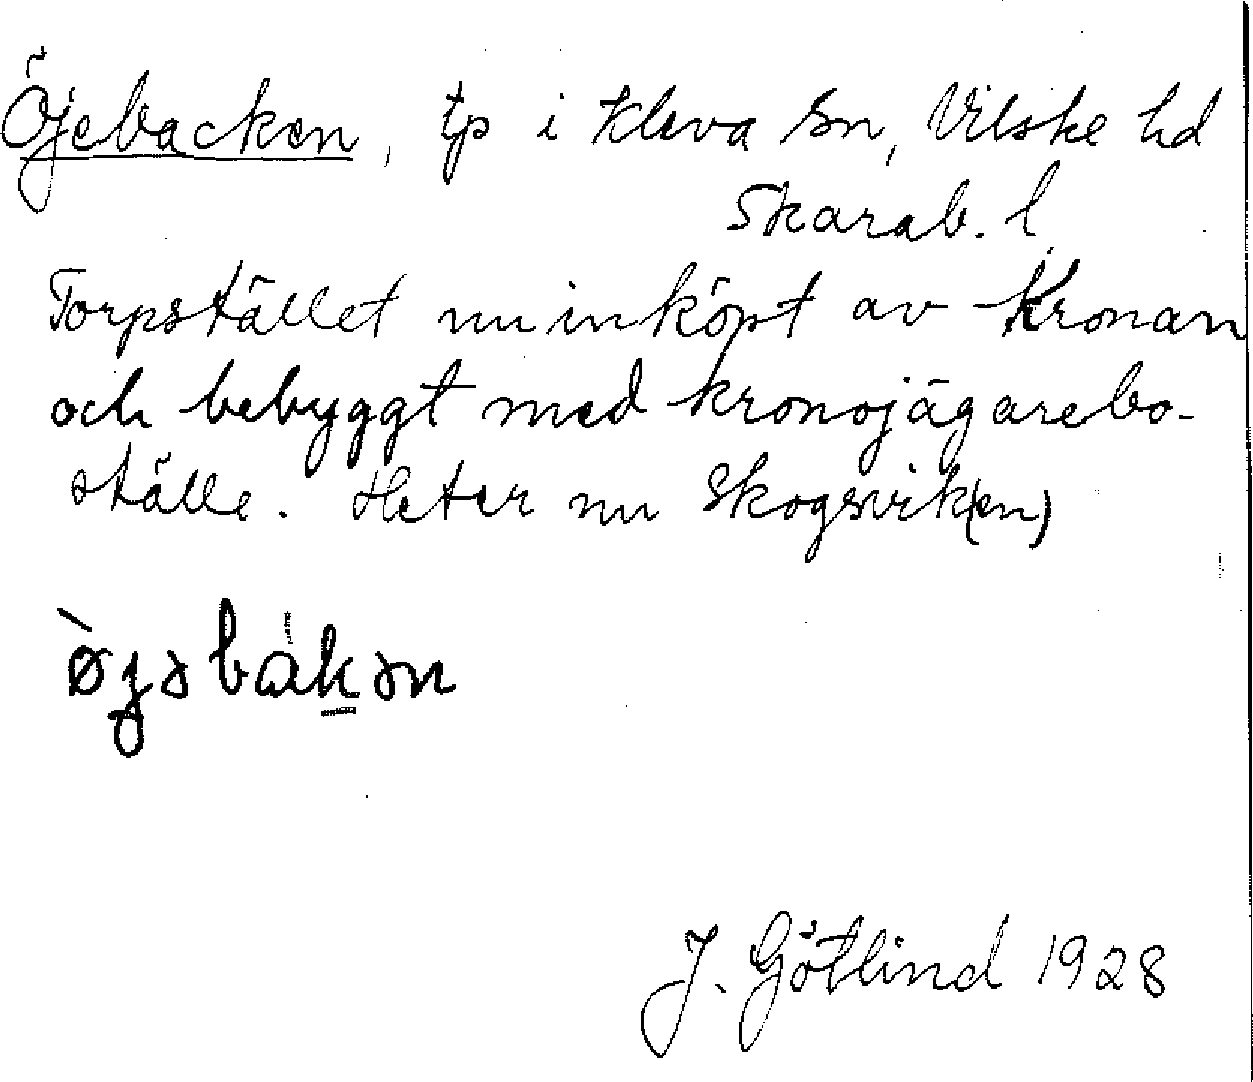 Öjebacken, tp i Kleva sn, Vilske hd
Skarab. l
Torpstället nu inköpt av Kronan
och bebyggt med kronojägarebo-
ställe. Heter nu Skogsvik(en)
òjəbàkən
J. Götlind 1928